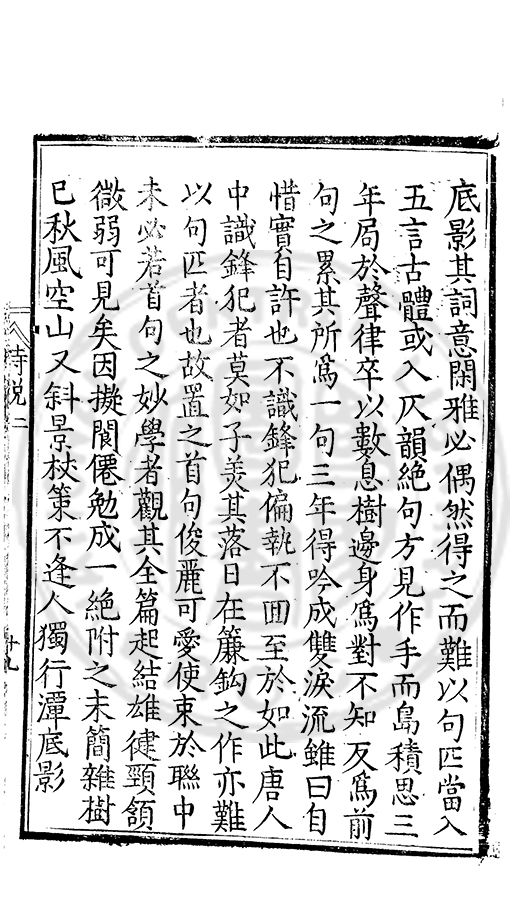 底影其詞意閑雅必偶然得之而難以句匹當入
五言古體或入仄韻絶句方見作手而島積思三
年局於聲律卒以數息樹邊身爲對不知反爲前
句之累其所爲一句三年得吟成雙淚流雖曰自
惜實自許也不識鋒犯偏執不囬至於如此唐人
中識鋒犯者莫如子羙其落日在簾鈎之作亦難
以句匹者也故置之首句俊麗可愛使束於聯中
未必若首句之妙學者觀其全篇起結雄徤頸頷
微弱可見矣因擬閬僊勉成一絶附之末簡雜樹
已秋風空山又斜景杖策不逢人獨行潭底影
詩說二
十九